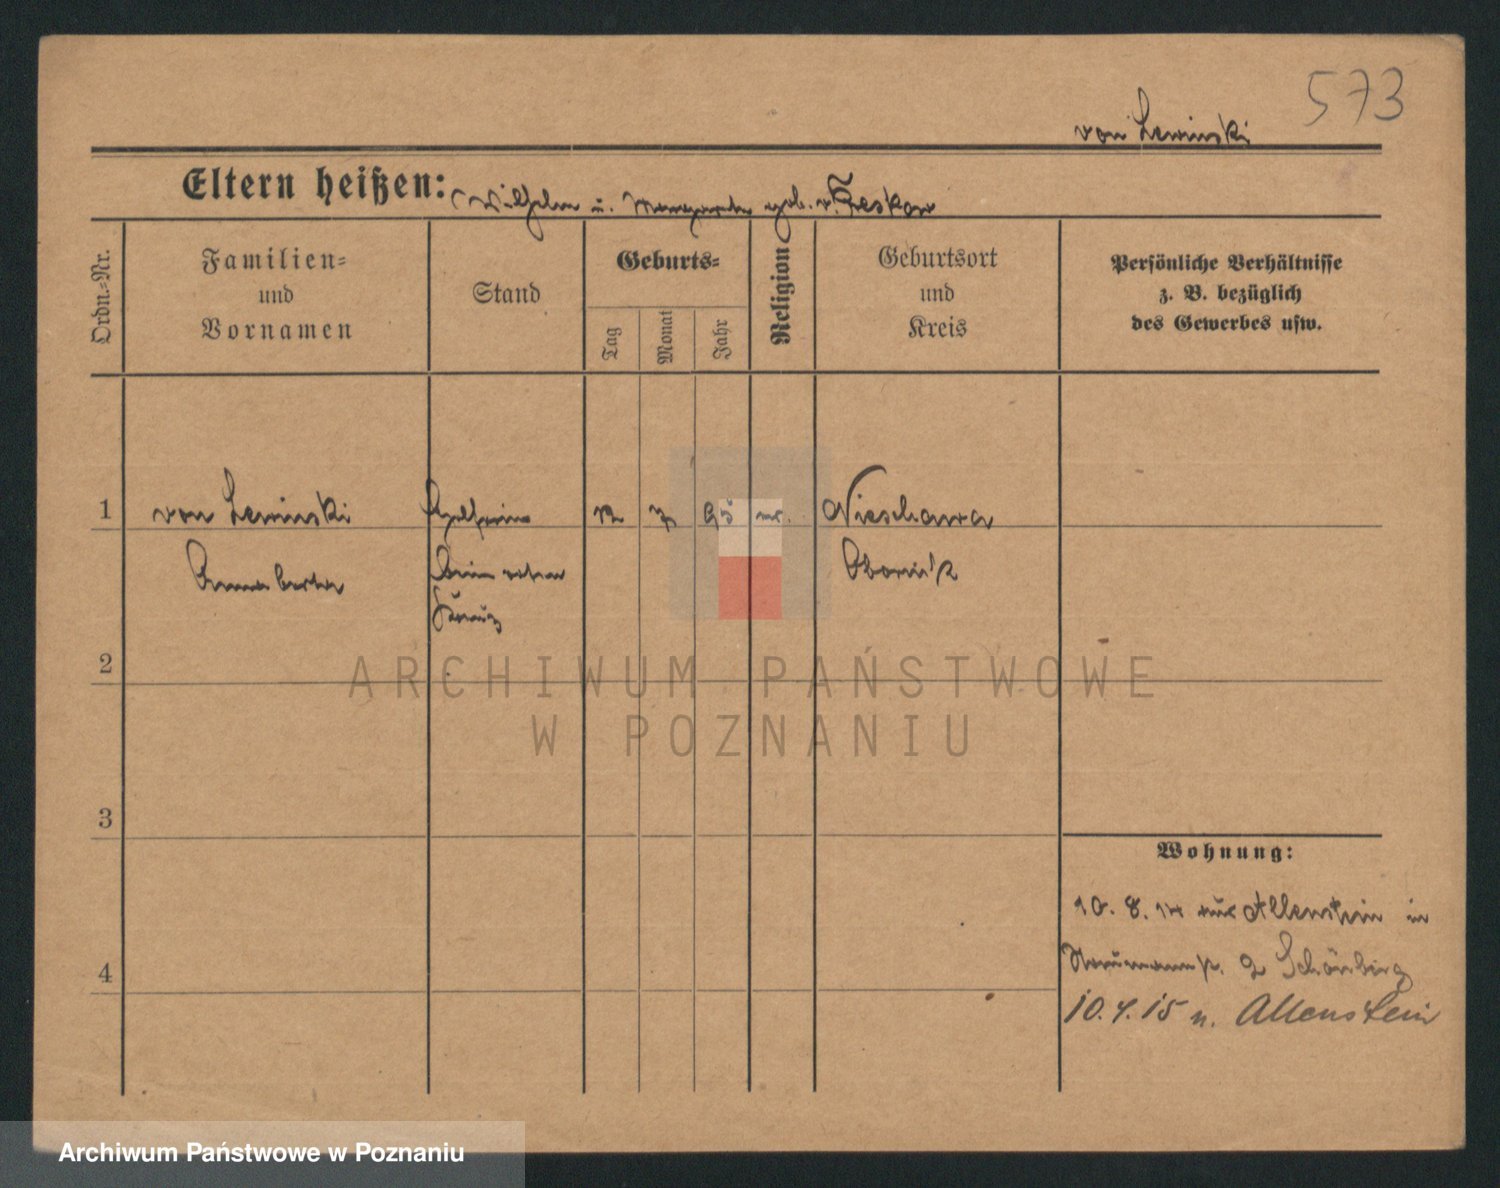 573
von Lewinski
Eltern heißen: Wilhelm u. Margarete geb. v. Treskow
Ordn.-Nr.
Familien-
und
Vornamen
Stand
Geburts-
Tag
Monat
Jahr
Religion
Geburtsort
und
Kreis
Persönliche Verhältnisse
z. B. bezüglich
des Gewerbes usw.
1
von Lewinski
Nieschawa
Obornik
2
3
4
ARCHIWUM PAŃSTWOWE
W POZNANIU
Wohnung:
10. 8. 14 aus Allenstein in
2 Schönberg
10.4.15 n. Allenstein
Archiwum Państwowe w Poznaniu